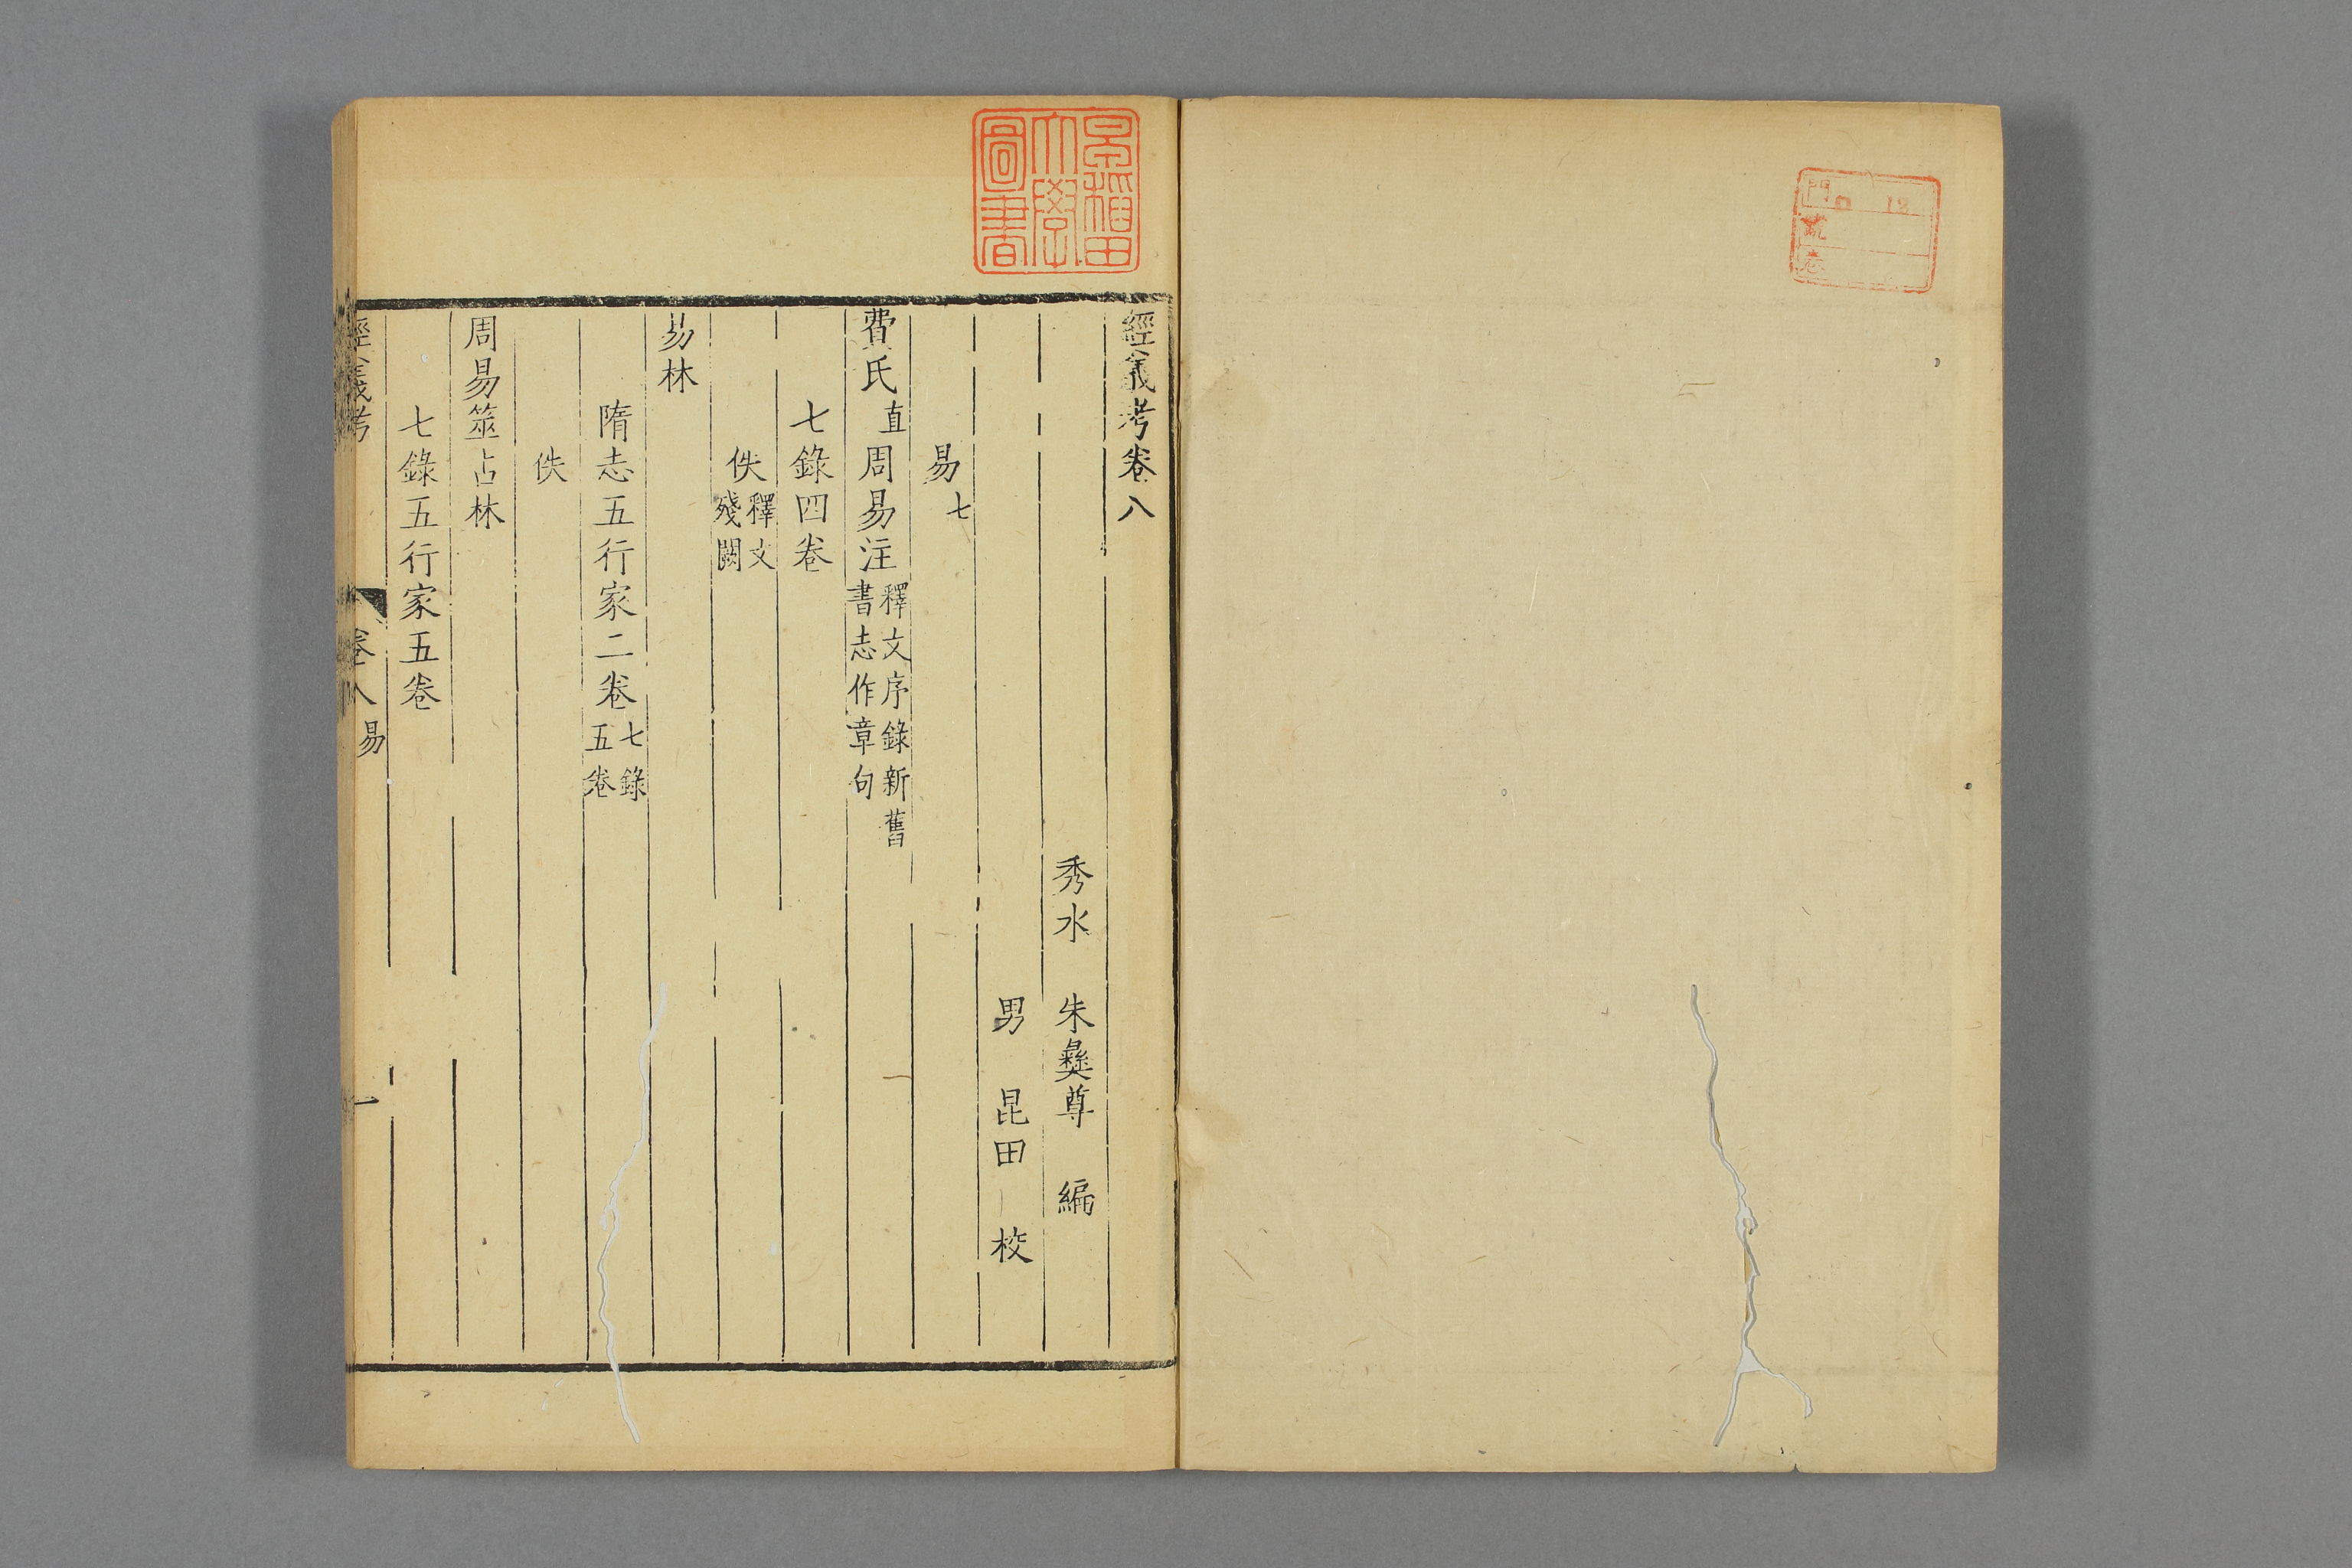 門 ロ 12
號
卷
早稻田
大學
圖書
經義考卷八
秀水 朱彝尊 編
男 昆田 校
易七
費氏直周易注釋文序錄新舊書志作章句
七錄四卷
佚釋文殘闕
易林
隋志五行家二卷七錄五卷
佚
周易筮占林
七錄五行家五卷
經義考 卷八 易 一